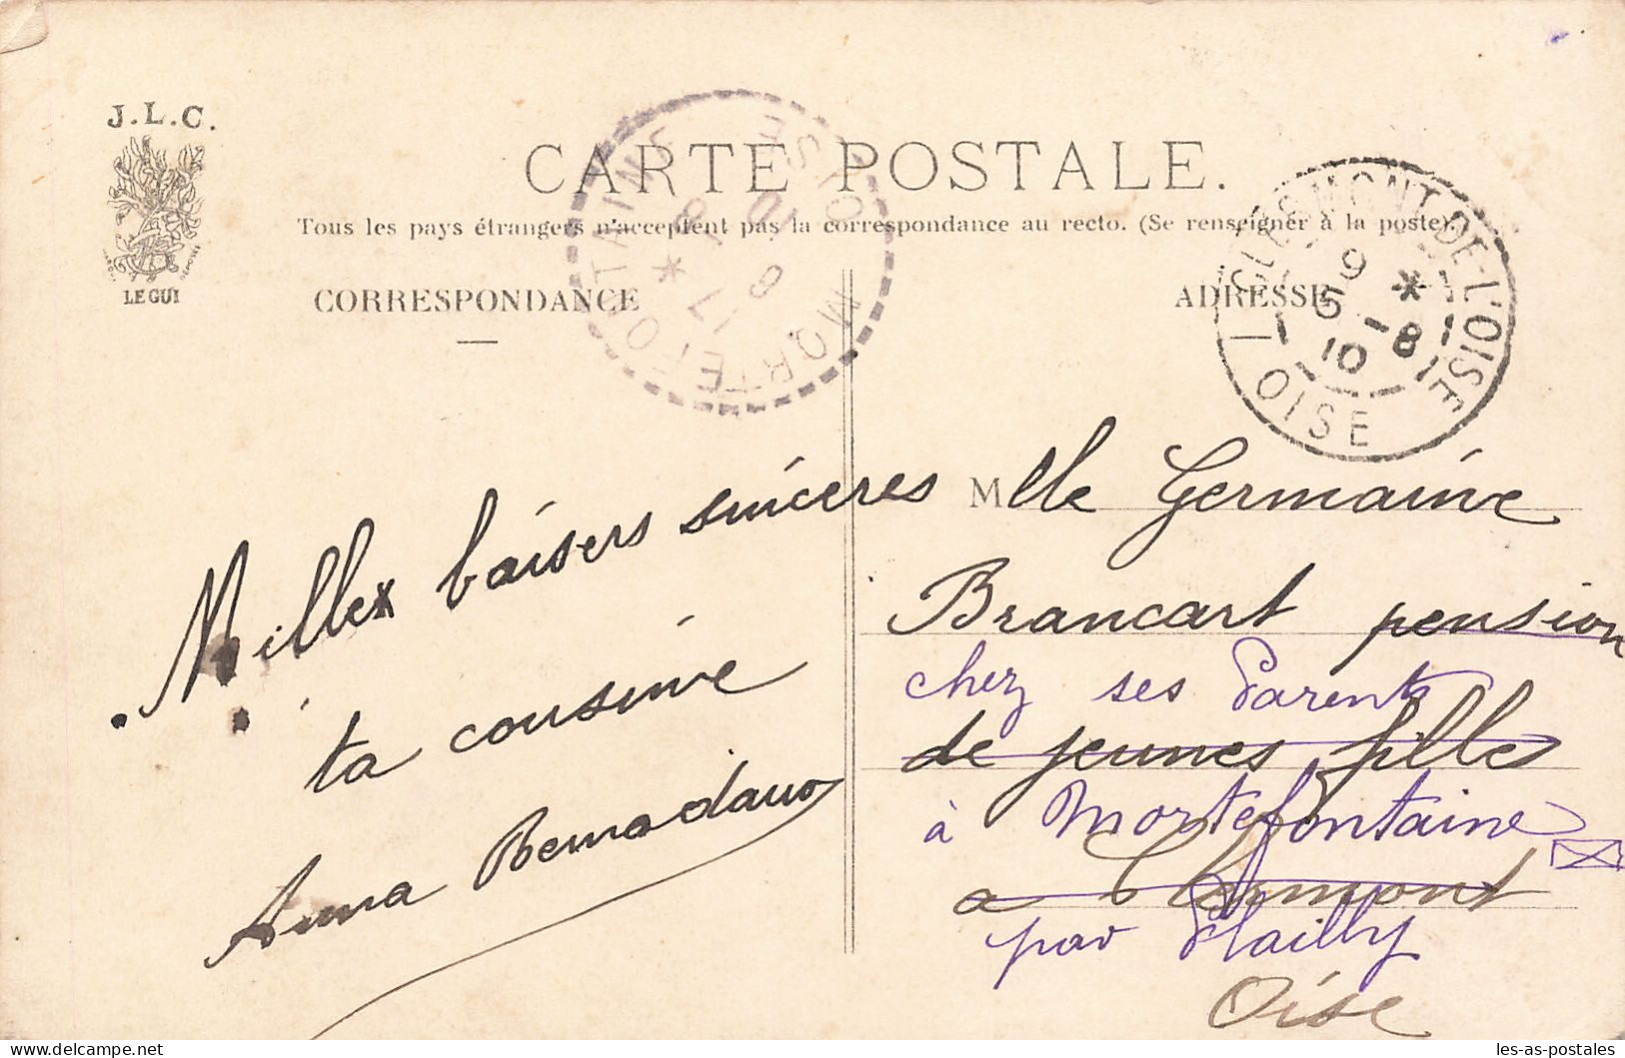 J.L.C.
LE GUI
CARTE POSTALE.
Tous les pays étrangers n'acceptent pas la correspondance au recto. (Se renseigner à la poste).
CORRESPONDANCE
ADRESSE
MORTEFONTAINE
OISE
17
8
10
CLERMONT-DE-L'OISE
9 *
5 -8
10
OISE
Milles baisers sincères
ta cousine
Anna
Mlle Germaine
Brancart pension
chez ses Parents
de jeunes fille
à Mortefontaine
a Clermont
par Plailly
Oise
les-as-postales